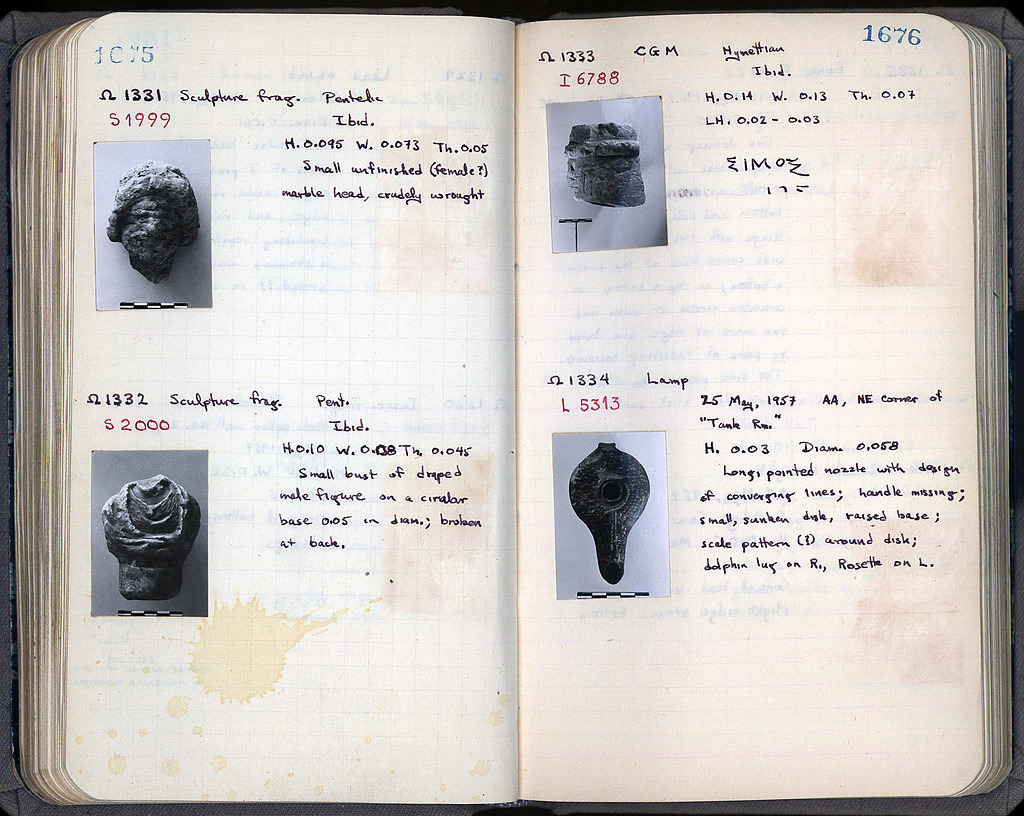 1675
Ω 1331 Sculpture frag. Pentelic
S 1999 Ibid.
H. 0.095 W. 0.073 Th. 0.05
Small unfinished (female?)
marble head, crudely wrought
Ω 1332 Sculpture frag. Pent.
S 2000 Ibid.
H. 0.10 W. 0.08 Th. 0.045
Small bust of draped
male figure on a circular
base 0.05 in diam.; broken
at back.
1676
Ω 1333 CGM Hymettian
I 6788 Ibid.
H. 0.14 W. 0.13 Th. 0.07
LH. 0.02 - 0.03
ΣΙΜΟΣ
Ω 1334 Lamp
L 5313 25 May, 1957 AA, NE corner of
"Tank Rm."
H. 0.03 Diam. 0.058
Long, pointed nozzle with design
of converging lines; handle missing;
small, sunken disk, raised base;
scale pattern (?) around disk;
dolphin lug on R., Rosette on L.